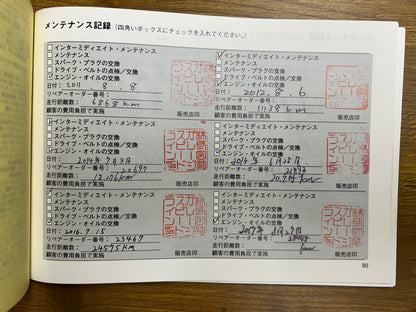 メンテナンス記録 (四角いボックスにチェックを入れてください。)
インターミディエイト・メンテナンス
メンテナンス
スパーク・プラグの交換
ドライブ・ベルトの点検/交換
エンジン・オイルの交換
日付: 2011 8. 8
リペアーオーダー番号:
走行距離数: 6868km
顧客の費用負担で実施
販売店印
インターミディエイト・メンテナンス
メンテナンス
スパーク・プラグの交換
ドライブ・ベルトの点検/交換
エンジン・オイルの交換
日付: 2012. 8. 6
リペアーオーダー番号:
走行距離数: 11138km
顧客の費用負担で実施
販売店印
インターミディエイト・メンテナンス
メンテナンス
スパーク・プラグの交換
ドライブ・ベルトの点検/交換
エンジン・オイルの交換
日付: 2014年7月9日
リペアーオーダー番号: 20697
走行距離数:
顧客の費用負担で実施
販売店印
インターミディエイト・メンテナンス
メンテナンス
スパーク・プラグの交換
ドライブ・ベルトの点検/交換
エンジン・オイルの交換
日付: 2015年 6月25日
リペアーオーダー番号:
走行距離数:
顧客の費用負担で実施
販売店印
インターミディエイト・メンテナンス
メンテナンス
スパーク・プラグの交換
ドライブ・ベルトの点検/交換
エンジン・オイルの交換
日付: 2016. 7. 15
リペアーオーダー番号: 23467
走行距離数: 24595KM
顧客の費用負担で実施
販売店印
インターミディエイト・メンテナンス
メンテナンス
スパーク・プラグの交換
ドライブ・ベルトの点検/交換
エンジン・オイルの交換
日付: 2017年 8月29日
リペアーオーダー番号:
走行距離数: km
顧客の費用負担で実施
販売店印
90